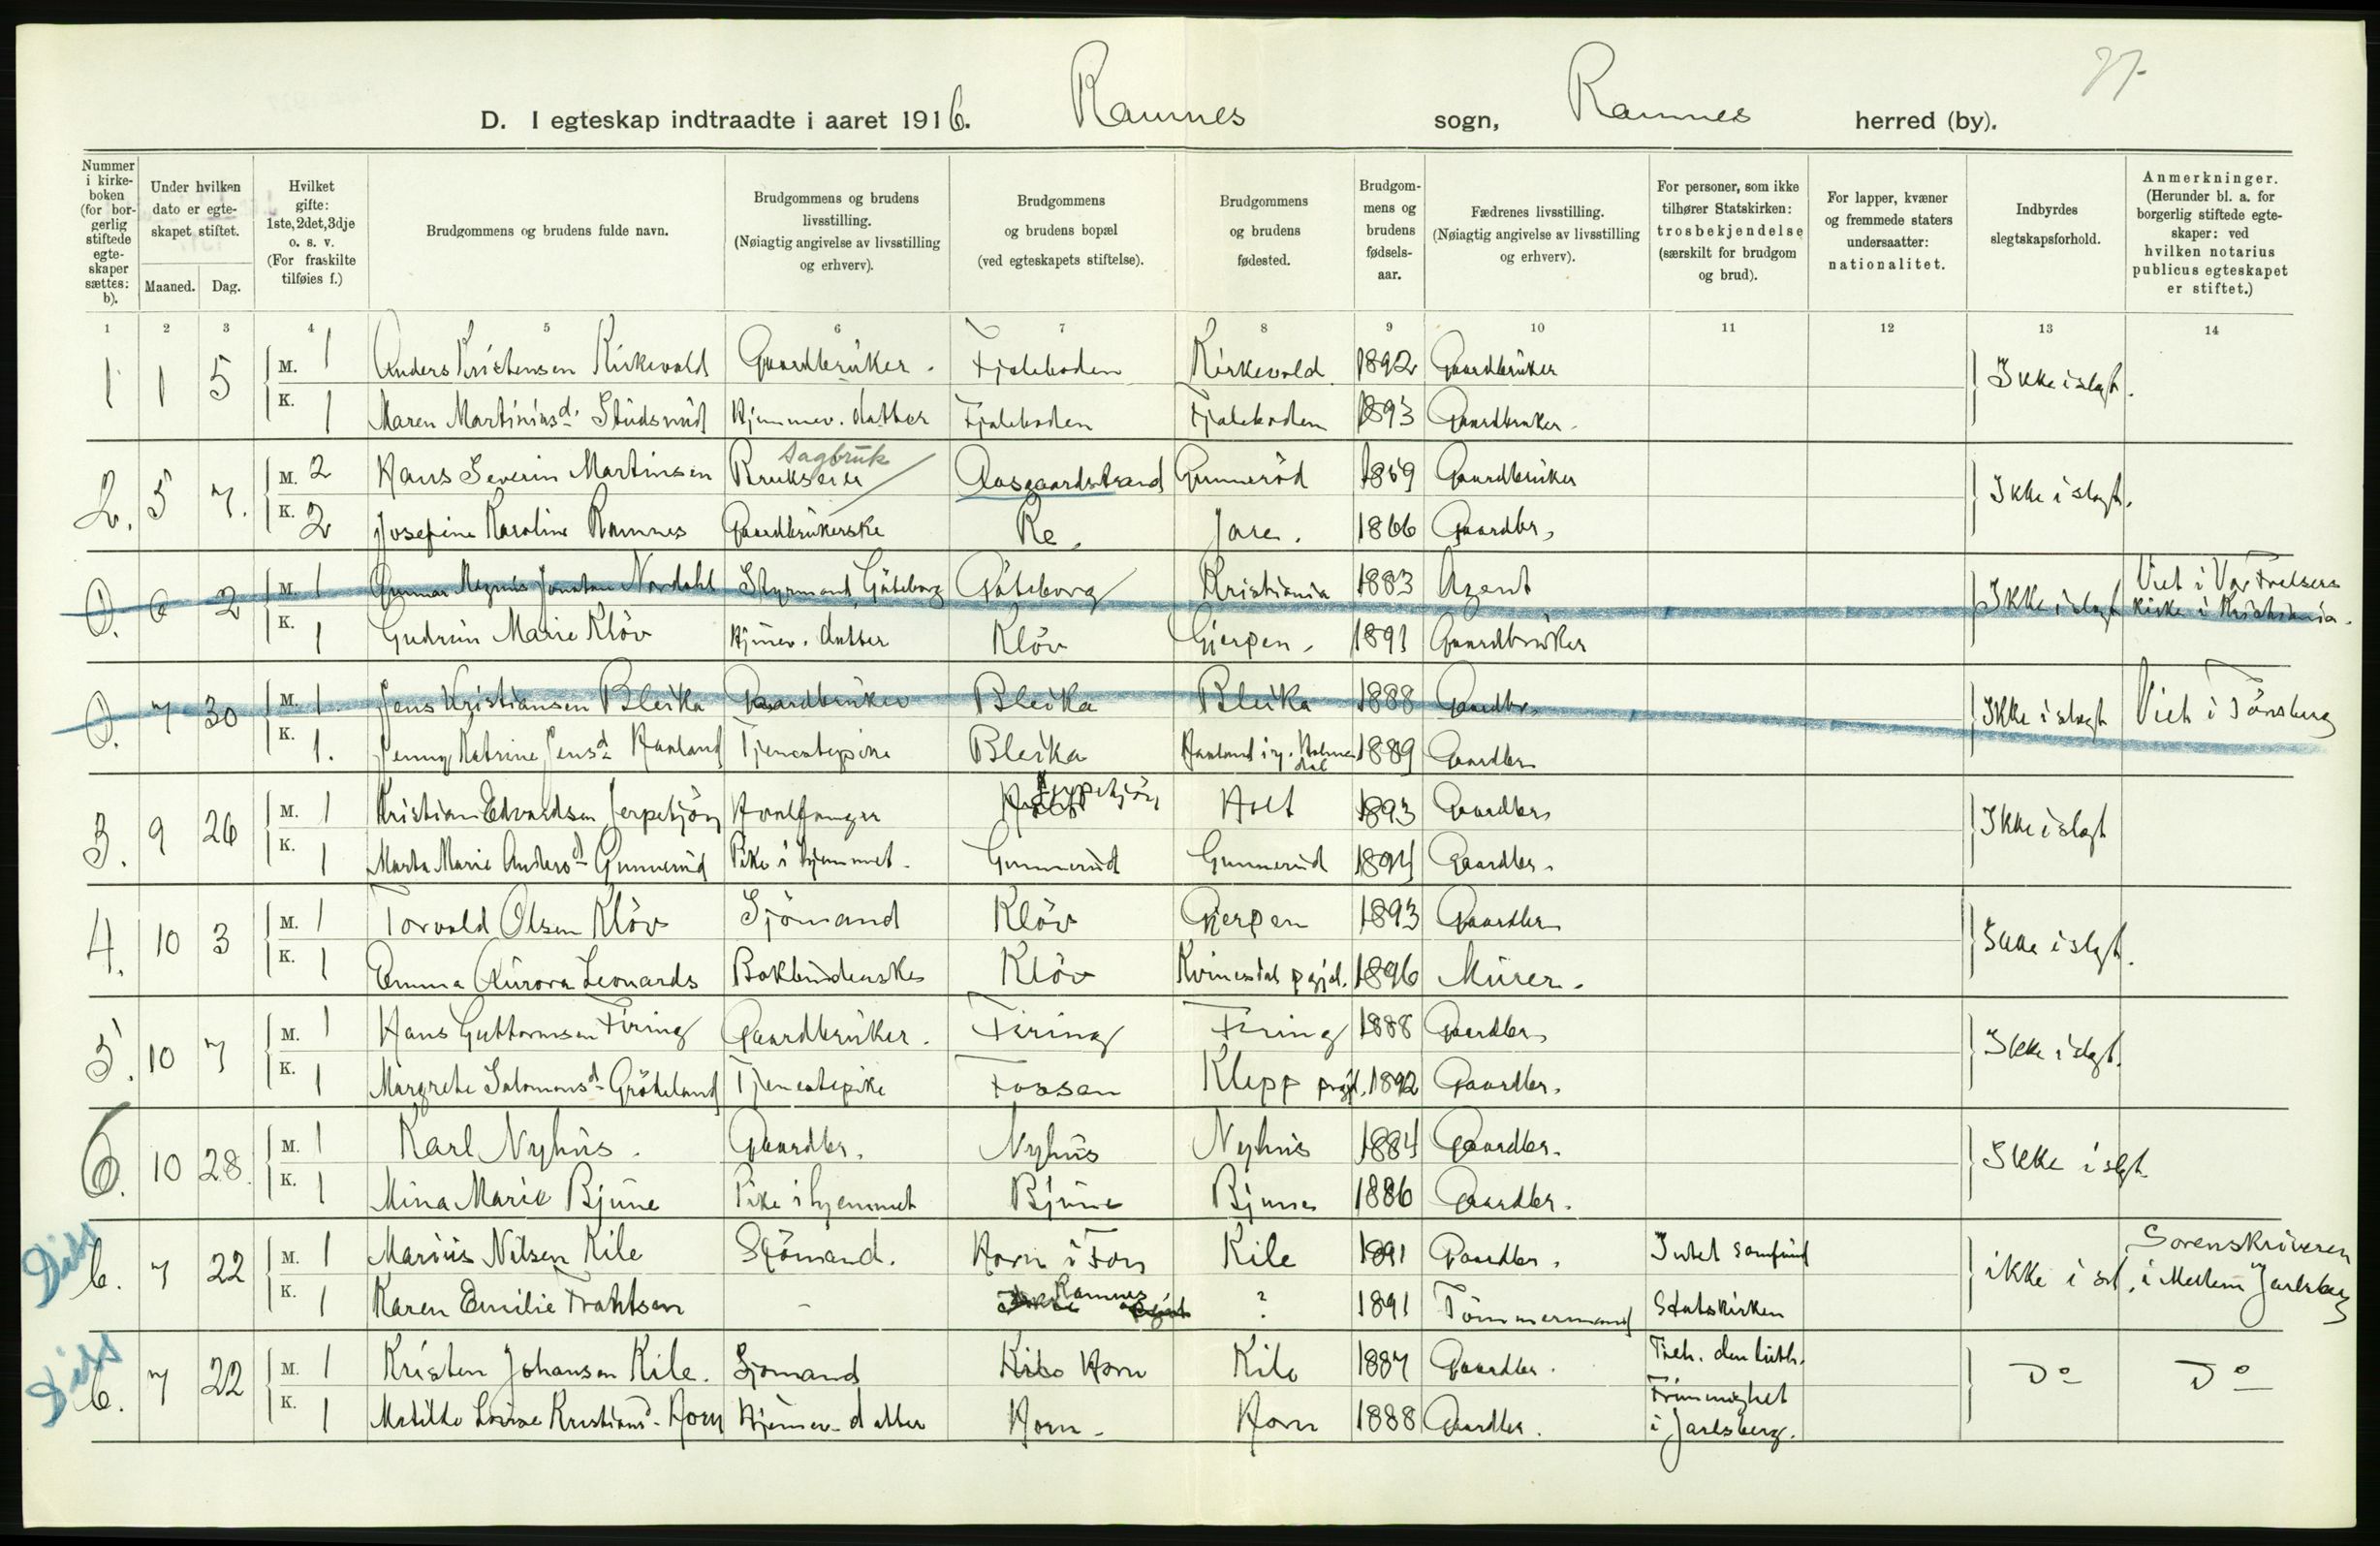 77.
D. I egteskap indtraadte i aaret 1916. Ramnes sogn, Ramnes herred (by).
Nummer i kirkeboken (for borgerlig stiftede egteskaper sættes: b).
Under hvilken dato er egteskapet stiftet.
Maaned. Dag.
Hvilket gifte: 1ste, 2det, 3dje o. s. v. (For fraskilte tilføies f.)
Brudgommens og brudens fulde navn.
Brudgommens og brudens livsstilling. (Nøiagtig angivelse av livsstilling og erhverv).
Brudgommens og brudens bopæl (ved egteskapets stiftelse).
Brudgommens og brudens fødested.
Brudgommens og brudens fødselsaar.
Fædrenes livsstilling. (Nøiagtig angivelse av livsstilling og erhverv).
For personer, som ikke tilhører Statskirken: trosbekjendelse (særskilt for brudgom og brud).
For lapper, kvæner og fremmede staters undersaatter: nationalitet.
Indbyrdes slegtskapsforhold.
Anmerkninger. (Herunder bl. a. for borgerlig stiftede egteskaper: ved hvilken notarius publicus egteskapet er stiftet.)
1 2 3 4 5 6 7 8 9 10 11 12 13 14
1 1 5 M. 1 Anders Kristensen Kirkevold Gaardbruker. Fjæleboden Kirkevold 1892 Gaardbruker Ikke i slegt.
K. 1 Maren Martiniusd. Studsrud Hjemmev. datter Fjæleboden Fjæleboden 1893 Gaardbruker.
2. 5 7. M. 2 Hans Severin Martinsen Sagbruk Brukseier Aasgaardstrand Gunnerød 1859 Gaardbruker Ikke i slegt.
K. 2 Josefine Karoline Ramnes Gaardbrukerske Re. Jare. 1866 Gaardbr.
0. 6 2 M. 1 Gunnar Magnus Jonatan Nordahl Styrmand, Göteborg Göteborg Kristiania 1883 Agent Ikke i slegt Viet i Vor Frelsers kirke i Kristiania.
K. 1 Gudrun Marie Kløv Hjmev. datter Kløv Gjerpen. 1891 Gaardbruker
0. 7 30 M. 1. Jens Kristiansen Bleika Gaardbruker Bleika Bleika 1888 Gaardbr. Ikke i slegt Viet i Tønsberg
K. 1. Jenny Katrine Jensd. Haaland Tjenestepike Bleika Haaland i 1889 Gaardbr.
3. 9 26 M. 1 Kristian Edvardsen Jerpetjøn Hvalfanger Jerpetjøn Holt 1893 Gaardbr. Ikke i slegt
K. 1 Marta Marie Andersd. Gunnerud Pike i hjemmet. Gunnerud Gunnerud 1894 Gaardbr.
4. 10 3 M. 1 Torvald Olsen Kløv Sjömand Kløv Gjerpen 1893 Gaardbr. Ikke i slegt.
K. 1 Emma Aurora Leonards Bokbinderske Kløv Kvinesdal pgjd. 1896 Murer.
5. 10 7 M. 1 Hans Guttormsen Firing Gaardbruker. Firing Firing 1888 Gaardbr. Ikke i slegt.
K. 1 Margrete Salomonsd. Gröteland Tjenestepike Fossan Klepp prgjd. 1892 Gaardbr.
6. 10 28. M. 1 Karl Nyhus. Gaardbr. Nyhus Nyhus 1884 Gaardbr. Ikke i slegt.
K. 1 Mina Marie Bjune Pike i hjemmet Bjune Bjune 1886 Gaardbr.
Diss
b. 7 22 M. 1 Marius Nilsen Kile Sjömand. Horn i Fon Kile 1891 Gaardbr. Intet samfund ikke i sl. Sorenskriveren i Mellem Jarlsberg
K. 1 Karen Emilie Trahtsen - Ramnes ? 1891 Tømmermand Statskirken
Diss
b. 7 22 M. 1 Kristen Johansen Kile. Sjømand Kile Horn Kile 1887 Gaardbr. Den luth. Frimenighet i Jarlsberg. Do Do
K. 1 Matilde Lovise Kristiansd. Horn Hjemmev. datter Horn. Horn 1888 Gaardbr.